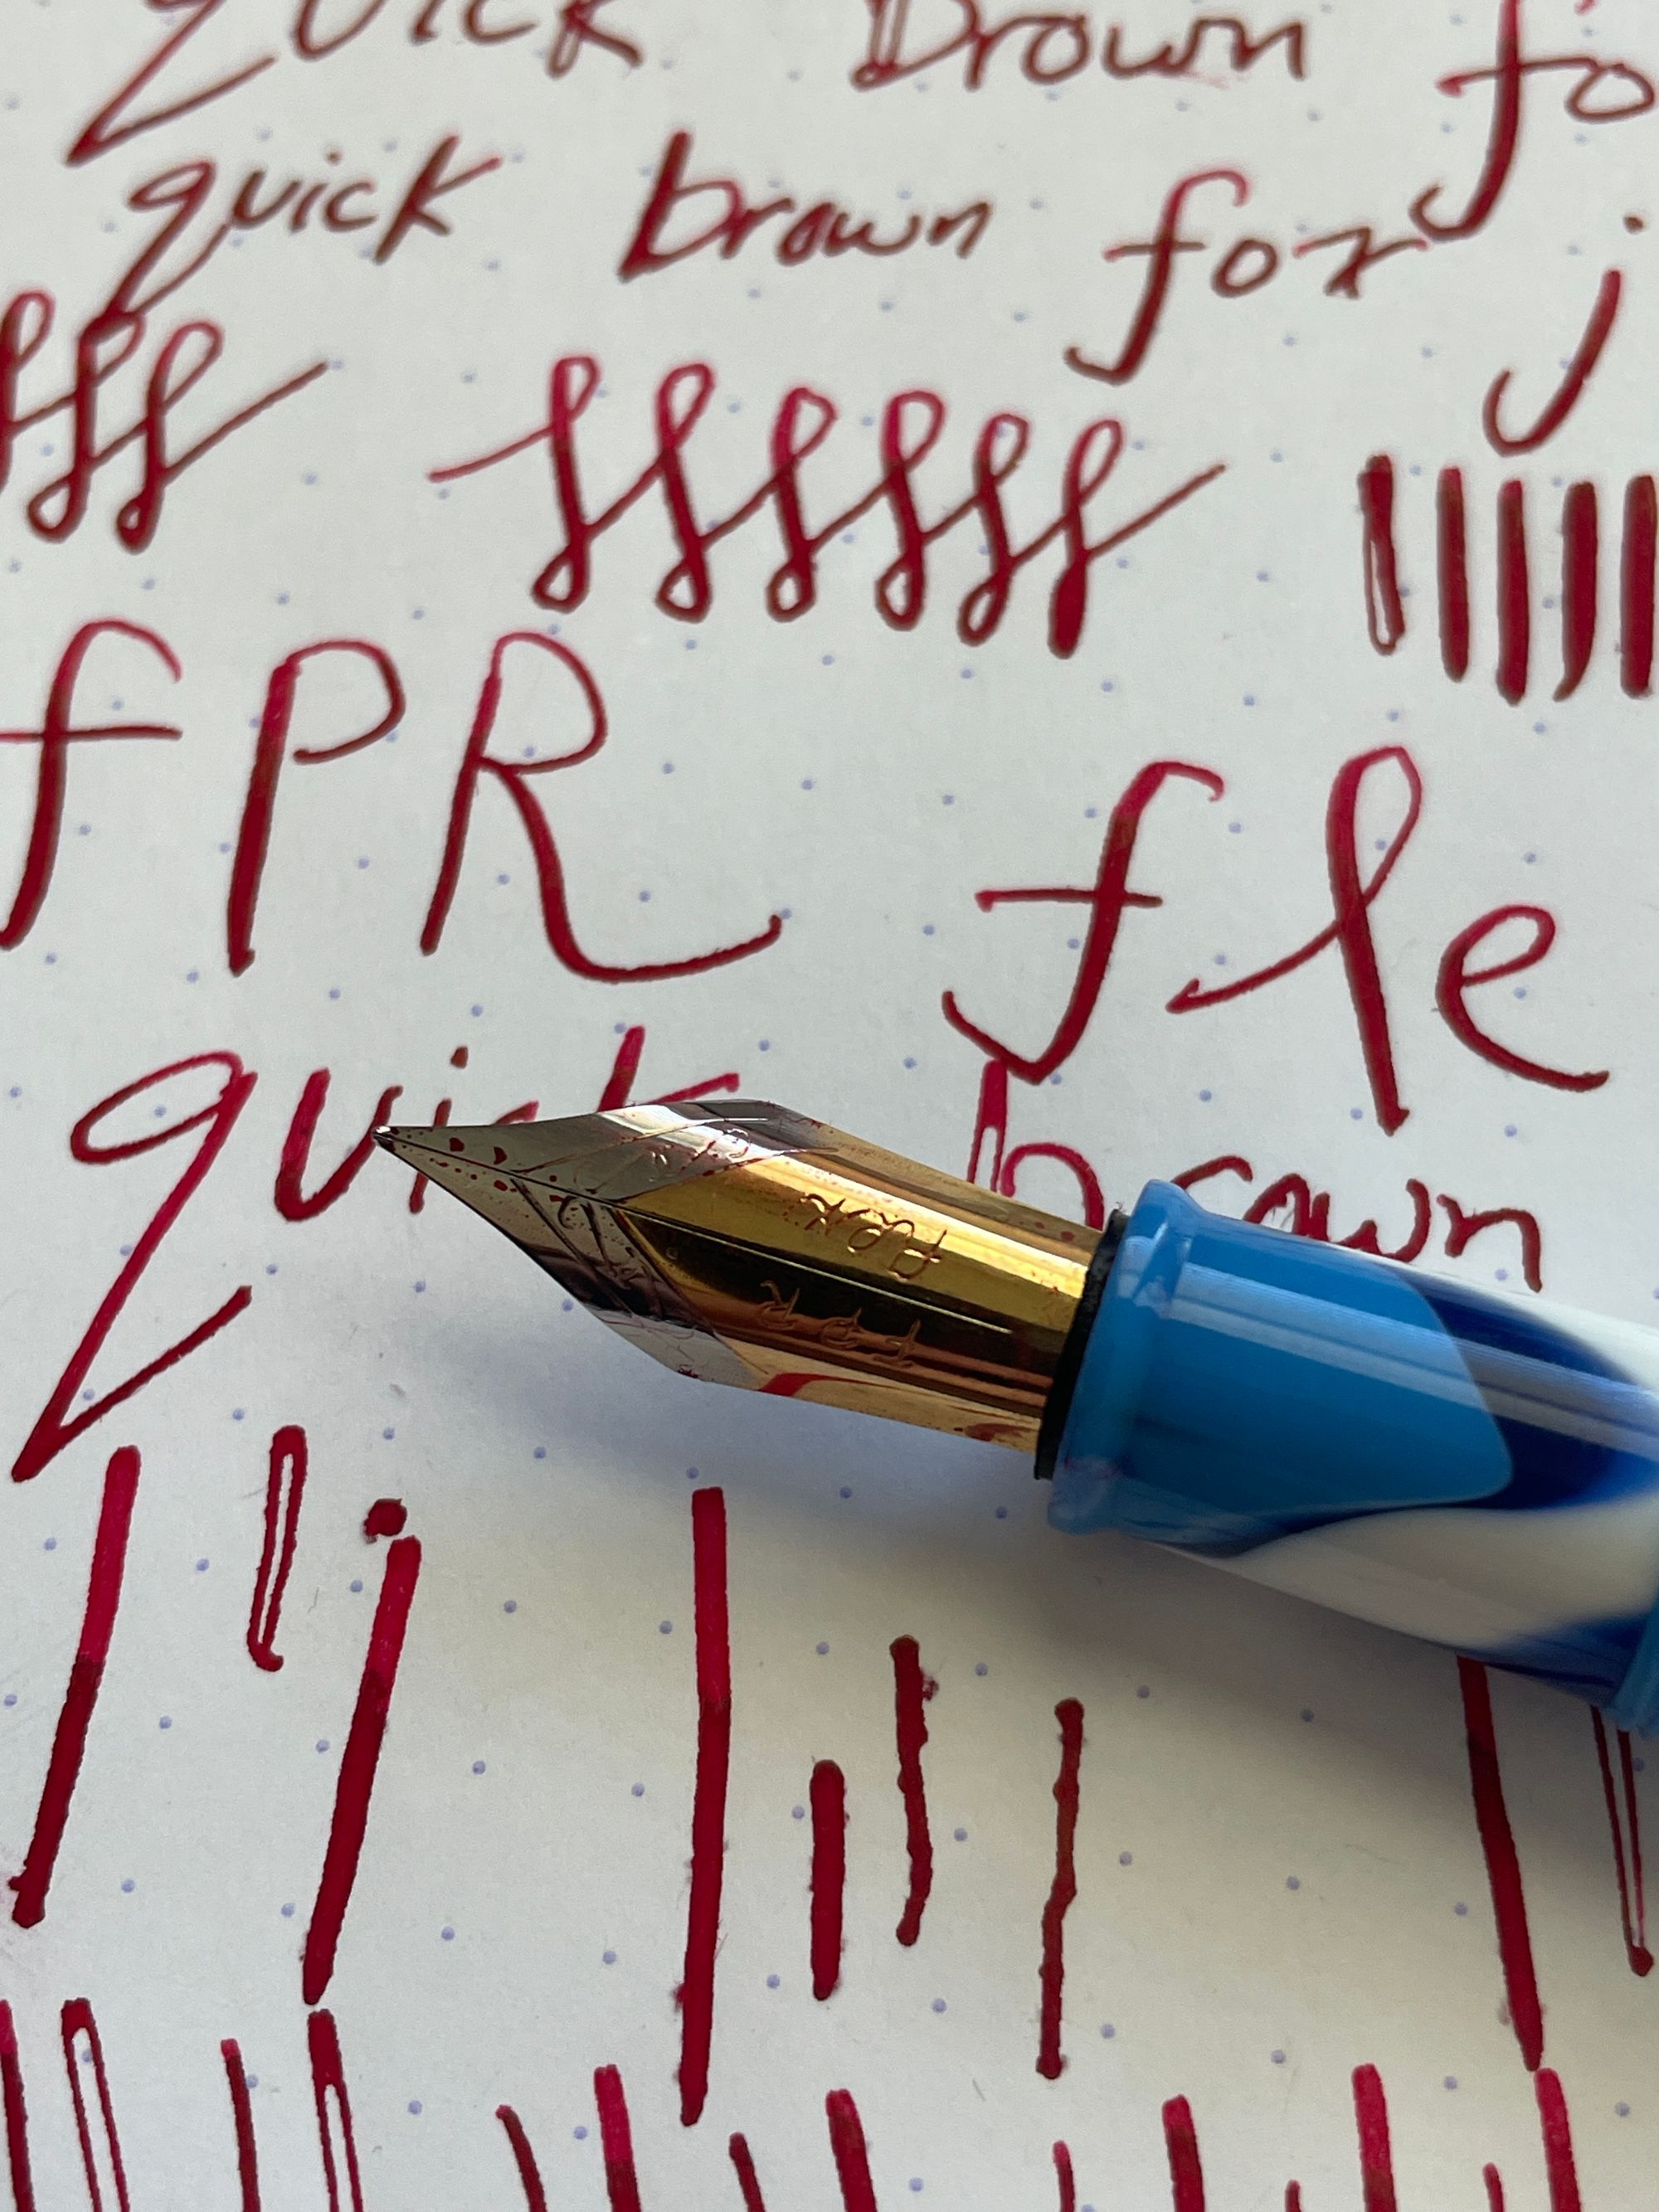 quick brown fo
quick brown fox j
fPR fle
quick brown
FPR